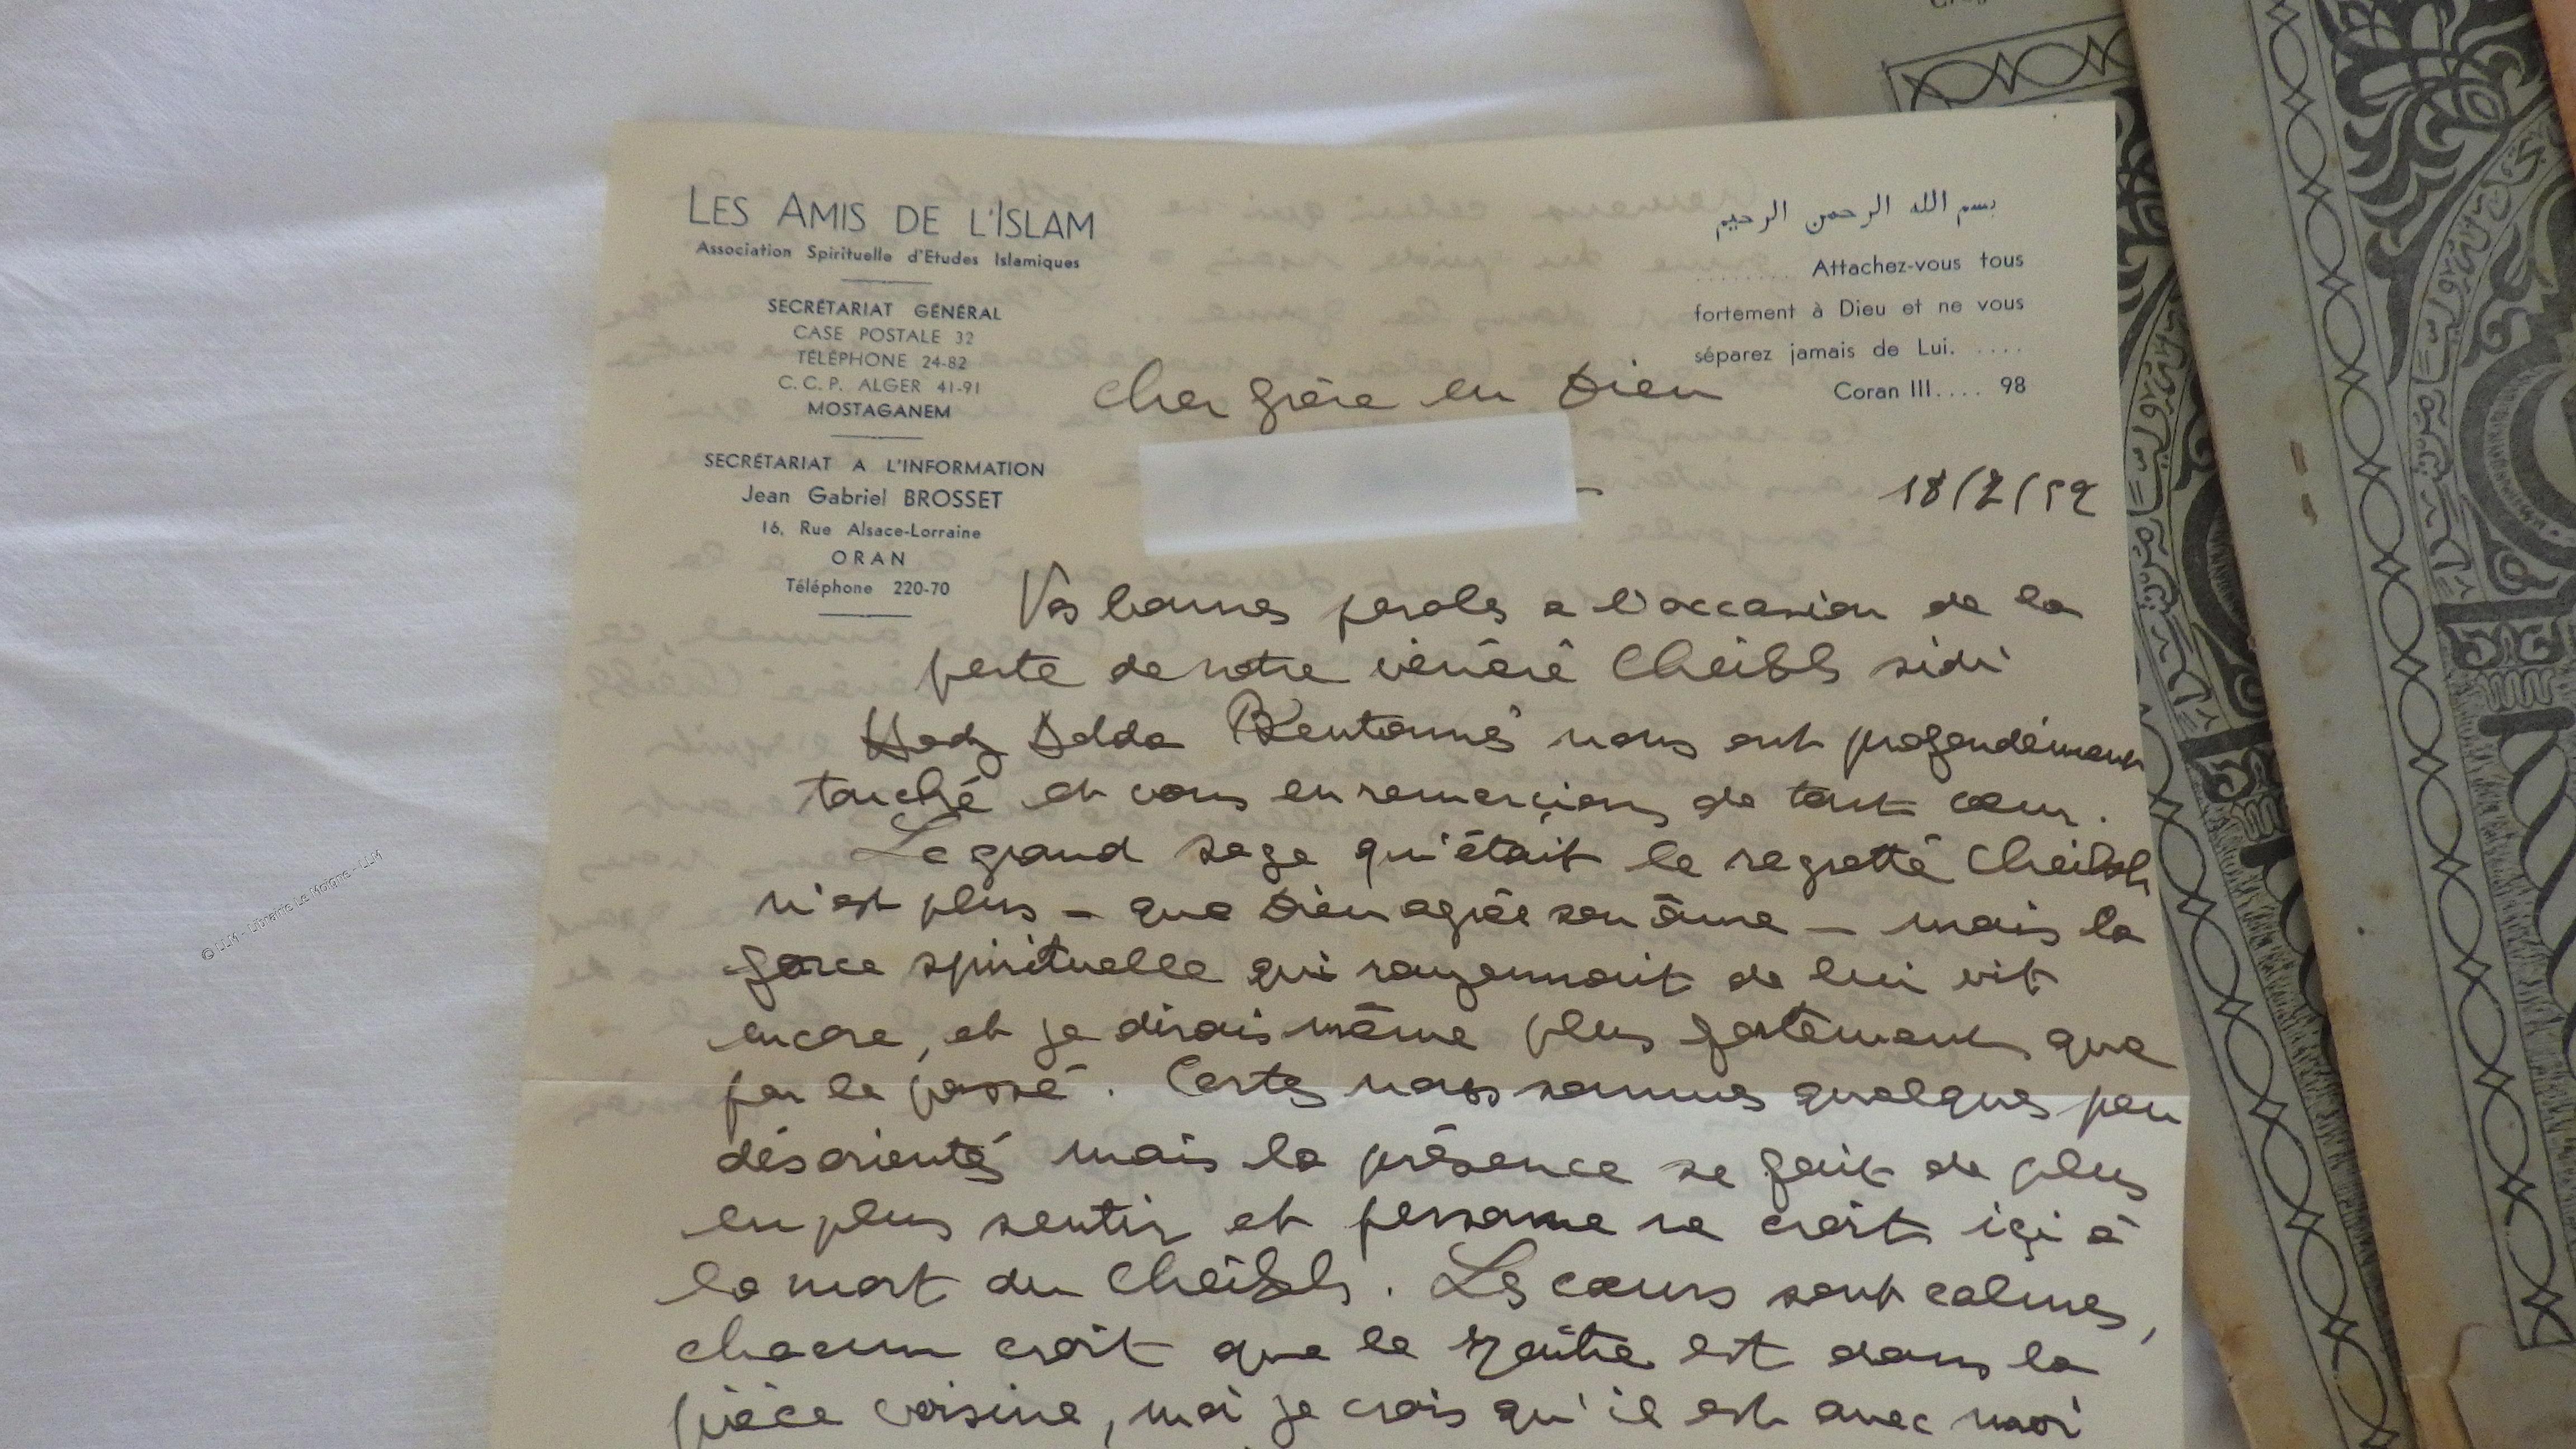 LES AMIS DE L'ISLAM
Association Spirituelle d'Etudes Islamiques
SECRÉTARIAT GÉNÉRAL
CASE POSTALE 32
TÉLÉPHONE 24-82
C.C.P. ALGER 41-91
MOSTAGANEM
SECRÉTARIAT A L'INFORMATION
Jean Gabriel BROSSET
16, Rue Alsace-Lorraine
ORAN
Téléphone 220-70
بسم الله الرحمن الرحيم
........ Attachez-vous tous
fortement à Dieu et ne vous
séparez jamais de Lui. ....
Coran III.... 98
Cher frère en Dieu
18/7/52
Vos bonnes paroles a l'occasion de la
perte de notre vénéré Cheikh sidi
Hadj Adda Bentounès nous ont profondément
touché et vous en remercions de tout cœur.
Le grand sage qu'était le regretté Cheikh
n'est plus - que Dieu agrée son âme - mais la
force spirituelle qui rayonnait de lui vit
encore, et je dirais même plus fortement que
par le passé. Certes nous sommes quelques peu
désorientés mais la présence se fait de plus
en plus sentir et personne ne croit içi à
la mort du Cheikh. Les cœurs sont calmes,
chacun croit que le Maître est dans la
pièce voisine, moi je crois qu'il est avec moi
© LLM - Librairie Le Moigne - LLM